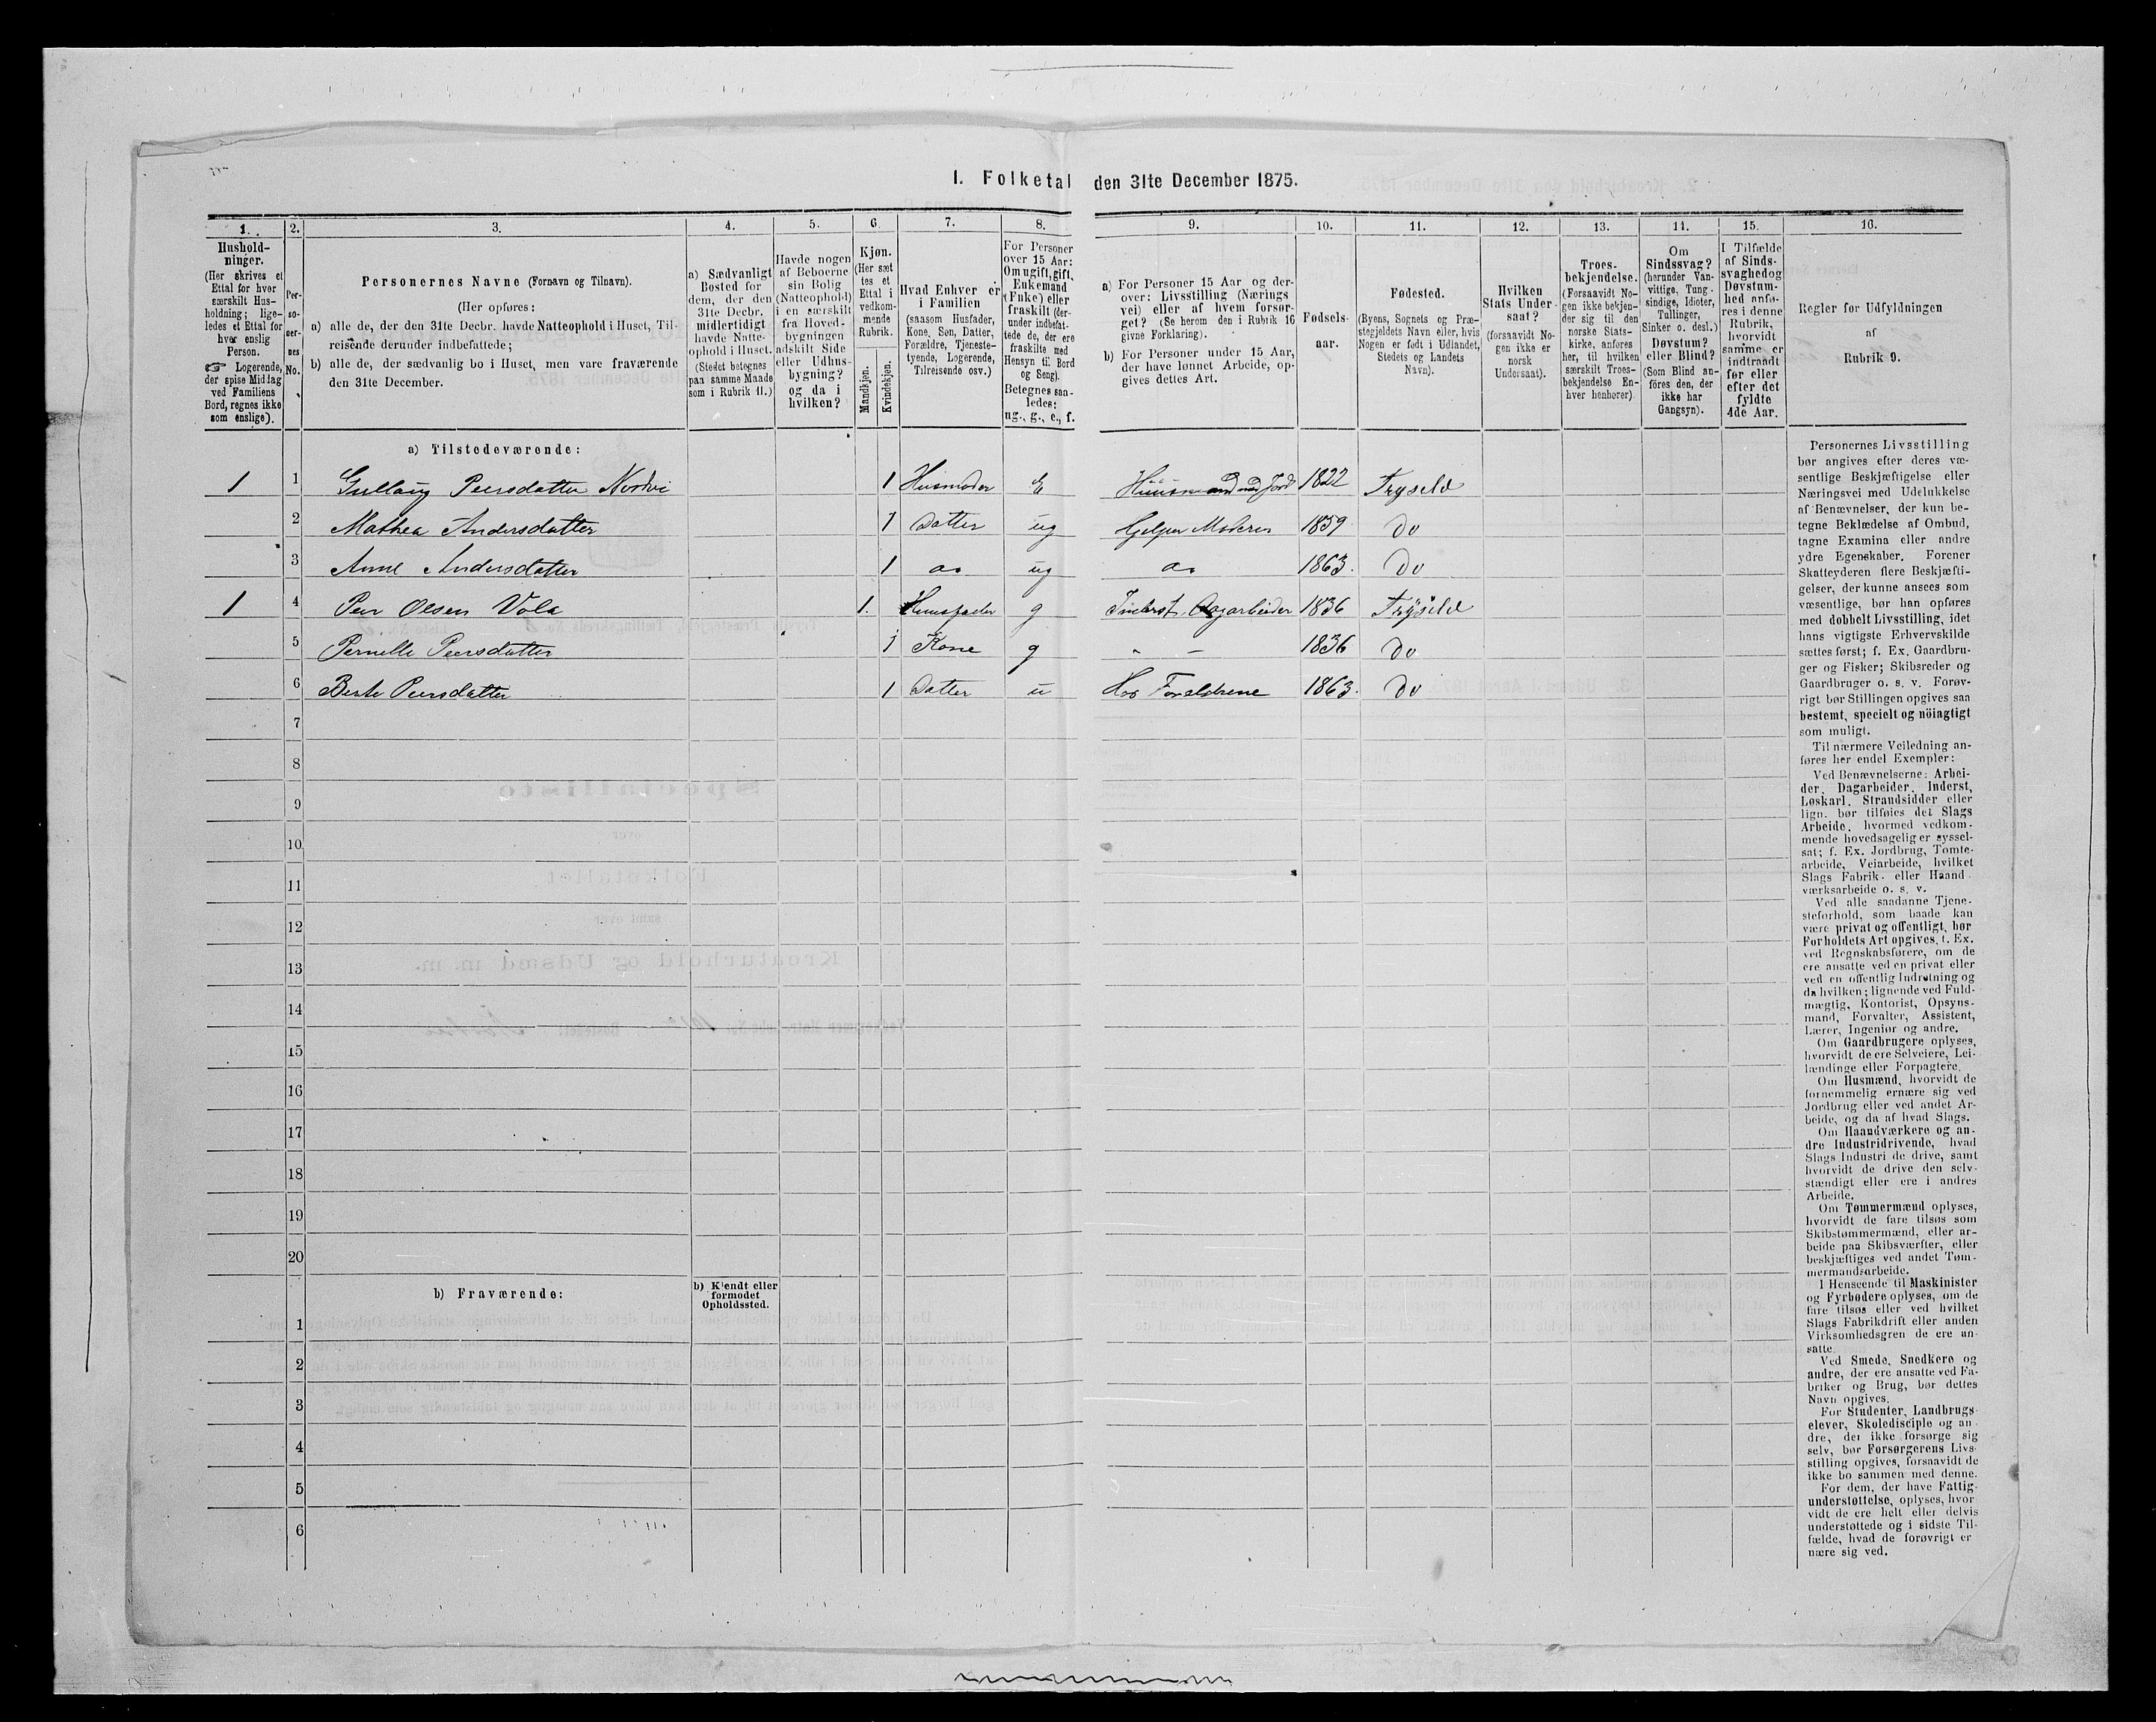 I. Folketal den 31te December 1875.
1. 2. 3. 4. 5. 6. 7. 8. 9. 10. 11. 12. 13. 14. 15. 16.
Hushold-
ninger.
(Her skrives et
Ettal for hver
særskilt Hus-
holdning; lige-
ledes et Ettal for
hver enslig
Person.
☞ Logerende,
der spise Middag
ved Familiens
Bord, regnes ikke
som enslige).
Per-
so-
ner-
nes
No.
Personernes Navne (Fornavn og Tilnavn).
(Her opføres:
a) alle de, der den 31te Decbr. havde Natteophold i Huset, Til-
reisende derunder indbefattede;
b) alle de, der sædvanlig bo i Huset, men vare fraværende
den 31te December.
a) Sædvanligt
Bosted for
dem, der den
31te Decbr.
midlertidigt
havde Natte-
ophold i Huset.
(Stedet betegnes
paa samme Maade
som i Rubrik 11.)
Havde nogen
af Beboerne
sin Bolig
(Natteophold)
i en særskilt
fra Hoved-
bygningen
adskilt Side
eller Udhus-
bygning?
og da i
hvilken?
Kjøn.
(Her sæt
tes et
Ettal i
vedkom-
mende
Rubrik.
Mandkjøn.
Kvindekjøn.
Hvad Enhver er
i Familien
(saasom Husfader,
Kone, Søn, Datter,
Forældre, Tjeneste-
tyende, Logerende,
Tilreisende osv.)
For Personer
over 15 Aar:
Om ugift, gift,
Enkemand
(Enke) eller
fraskilt (der-
under indbefat-
tede de, der ere
fraskilte med
Hensyn til Bord
og Seng).
Betegnes saa-
ledes:
ug., g., e., f.
a) For Personer 15 Aar og der-
over: Livsstilling (Nærings
vei) eller af hvem forsør-
get? (Se herom den i Rubrik 16
givne Forklaring).
b) For Personer under 15 Aar,
der have lønnet Arbeide, op-
gives dettes Art.
Fødsels-
aar.
Fødested.
(Byens, Sognets og Præ-
stegjeldets Navn eller, hvis
Nogen er født i Udlandet,
Stedets og Landets
Navn).
Hvilken
Stats Under-
saat?
(forsaavidt No-
gen ikke er
norsk
Undersaat).
Troes-
bekjendelse.
(Forsaavidt No-
gen ikke bekjen-
der sig til den
norske Stats-
kirke, anføres
her, til hvilken
særskilt Troes-
bekjendelse En-
hver henhører)
Om
Sindssvag?
(herunder Van-
vittige, Tung-
sindige, Idioter,
Tullinger,
Sinker o. desl.)
Døvstum?
eller Blind?
(Som Blind an-
føres den, der
ikke har
Gangsyn).
I Tilfælde
af Sinds-
svaghed og
Døvstum-
hed anfø-
res i denne
Rubrik,
hvorvidt
samme er
indtraadt
før eller
efter det
fyldte
4de Aar.
Regler for Udfyldningen
af
Rubrik 9.
a) Tilstedeværende:
1 1 Gullaug Peersdatter Nordvi 1 Husmoder E Huusmand med Jord 1822 Trysild
2 Mathea Andersdatter 1 Datter ug Hjelper Moderen 1859 Do
3 Anne Andersdatter 1 do ug do 1863. Do
1 4 Peer Olsen Vola 1. Huusfader g Inderst, Dagarbeider 1836 Trysild
5 Pernille Peersdatter 1 Kone g " – 1836 Do
6 Berte Peersdatter 1 Datter u Hos Foreldrene 1863. Do
7
8
9
10
11
12
13
14
15
16
17
18
19
20
b) Fraværende:
b) Kjendt eller
formodet
Opholdssted.
1
2
3
4
5
6
Personernes Livsstilling
bør angives efter deres væ-
sentlige Beskjæftigelse eller
Næringsvei med Udelukkelse
af Benævnelser, der kun be-
tegne Beklædelse af Ombud,
tagne Examina eller andre
ydre Egenskaber. Forener
Skatteyderen flere Beskjæfti-
gelser, der kunne ansees som
væsentlige, bør han opføres
med dobbelt Livsstilling, idet
hans vigtigste Erhvervskilde
sættes først; f. Ex. Gaardbru-
ger og Fisker; Skibsreder og
Gaardbruger o. s. v. Forøv-
rigt bør Stillingen opgives saa
bestemt, specielt og nöiagtigt
som muligt.
Til nærmere Veiledning an-
føres her endel Exempler:
Ved Benævnelserne: Arbei-
der, Dagarbeider, Inderst,
Løskarl, Strandsidder eller
lign. bør tilføies det Slags
Arbeide, hvormed vedkom-
mende hovedsagelig er syssel-
sat; f. Ex. Jordbrug, Tomte-
arbeide, Veiarbeide, hvilket
Slags Fabrik- eller Haand-
værksarbeide o. s. v.
Ved alle saadanne Tjene-
steforhold, som baade kan
være privat og offentligt, bør
Forholdets Art opgives, f. Ex.
ved Regnskabsførere, om de
ere ansatte ved en privat eller
ved en offentlig Indretning og
da hvilken; lignende ved Fuld-
mægtig, Kontorist, Opsyns-
mand, Forvalter, Assistent,
Lærer, Ingeniør og andre.
Om Gaardbrugere oplyses,
hvorvidt de ere Selveiere, Lei-
lændinge eller Forpagtere.
Om Husmænd, hvorvidt de
fornemmelig ernære sig ved
Jordbrug eller ved andet Ar-
beide, og da af hvad Slags.
Om Haandværkere og an-
dre Industridrivende, hvad
Slags Industri de drive, samt
hvorvidt de drive den selv-
stændigt eller ere i andres
Arbeide.
Om Tømmermænd oplyses,
hvorvidt de fare tilsøs som
Skibstømmermænd, eller ar-
beide paa Skibsværfter, eller
beskjæftiges ved andet Tøm-
mermandsarbeide.
I Henseende til Maskinister
og Fyrbødere oplyses, om de
fare tilsøs eller ved hvilket
Slags Fabrikdrift eller anden
Virksomhedsgren de ere an-
satte.
Ved Smede, Snedkere og
andre, der ere ansatte ved Fa-
briker og Brug, bør dettes
Navn opgives.
For Studenter, Landbrugs-
elever, Skoledisciple og an-
dre, der ikke forsørge sig
selv, bør Forsørgerens Livs-
stilling opgives, forsaavidt de
ikke bo sammen med denne.
For dem, der have Fattig-
understøttelse, oplyses, hvor-
vidt de ere helt eller delvis
understøttede og i sidste Til-
fælde, hvad de forøvrigt er-
nære sig ved.